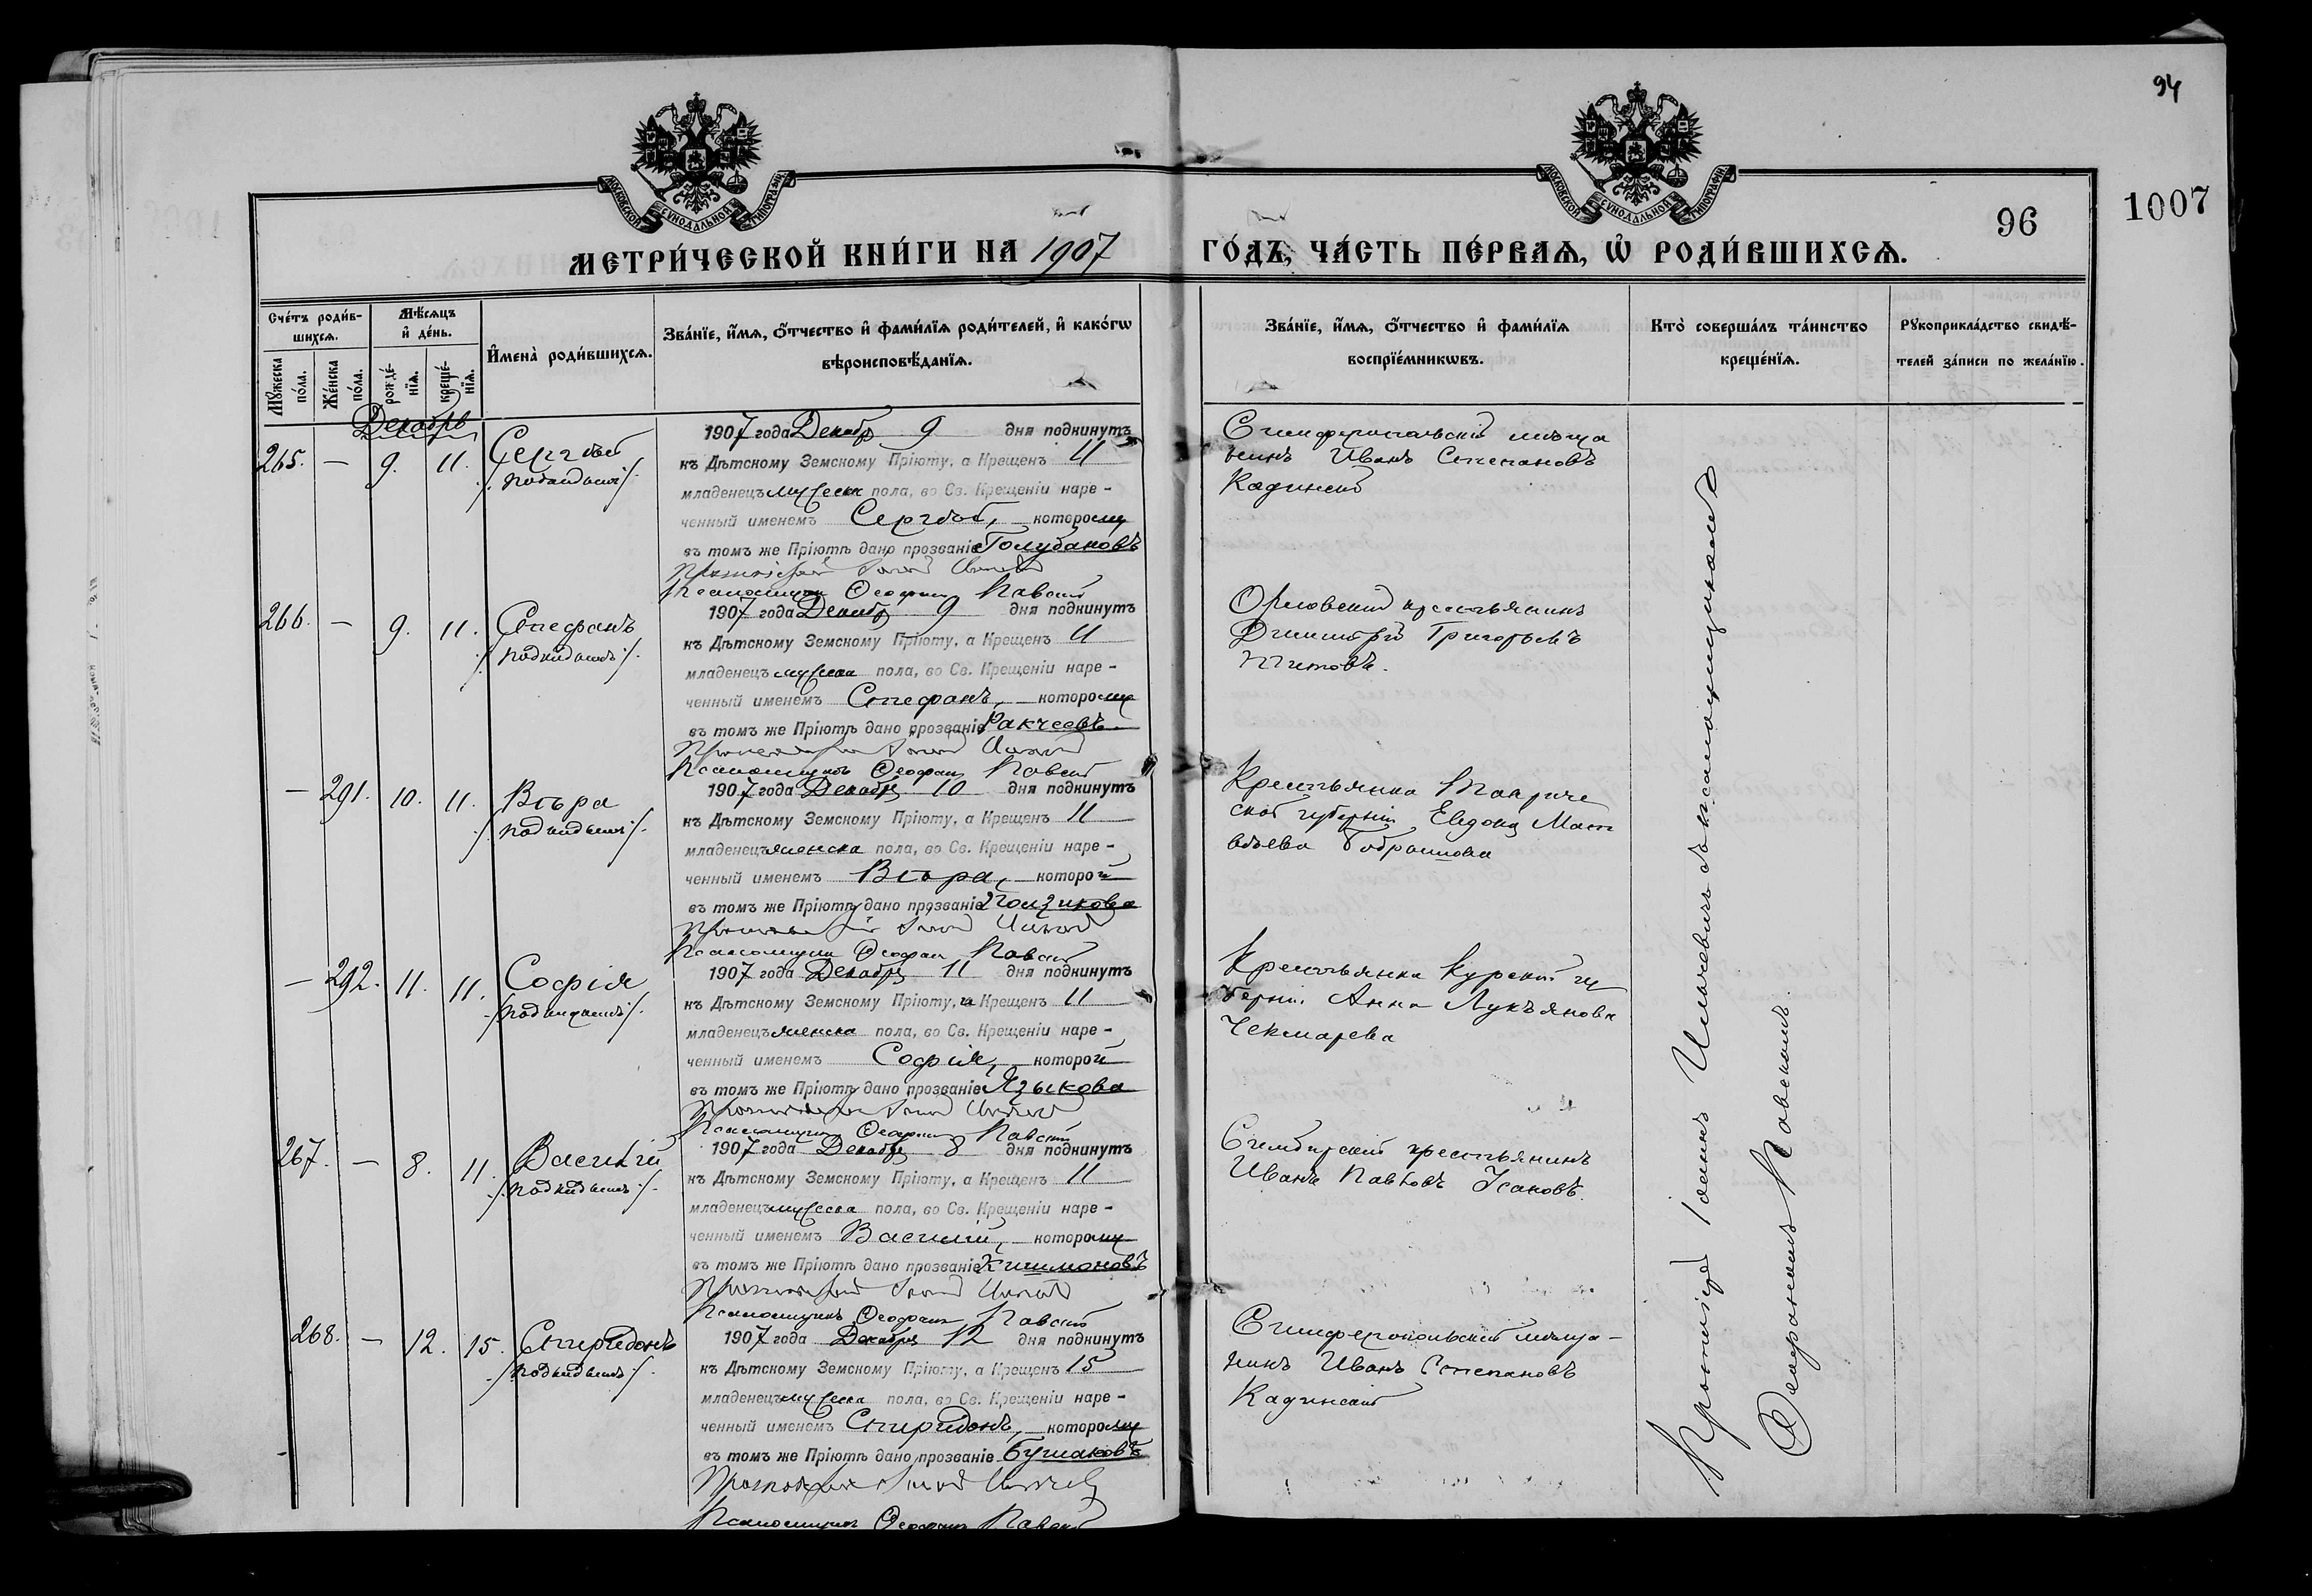 94
1007
96
МОСКОВСКОЙ СУНОДАЛЬНОЙ ТИПОГРАФІИ
МОСКОВСКОЙ СУНОДАЛЬНОЙ ТИПОГРАФІИ
МЕТРИ́ЧЕСКОЙ КНИ́ГИ НА 1907 ГО́ДЪ, ЧА́СТЬ ПЕ́РВАѦ, Ѡ҆ РОДИ́ВШИХСѦ.
Сче́тъ роди́в-
шихсѧ.
Мꙋ́жеска по́ла.
Же́нска по́ла.
Мѣ́сѧцъ
и҆ де́нь.
рожде́-нїѧ.
креще́-нїѧ.
И҆мена̀ роди́вшихсѧ.
Зва́нїе, и҆́мѧ, ѻ҆́тчество и҆ фами́лїѧ роди́телей, и҆ како́гѡ
вѣроисповѣ́данїѧ.
Зва́нїе, и҆́мѧ, ѻ҆́тчество и҆ фами́лїѧ
воспрїе́мникѡвъ.
Кто̀ соверша́лъ та́инство
креще́нїѧ.
Рꙋкоприкла́дство свидѣ́-
телей за́писи по жела́нїю.
Декабрь
265. — 9. 11. Сергѣй
/. подкидышъ ./
1907 года Декабр 9 дня подкинутъ
къ Дѣтскому Земскому Пріюту, а Крещенъ 11
младенецъ мужеска пола, во Св. Крещеніи наре-
ченный именемъ Сергѣй, которому
въ томъ же Пріютѣ дано прозваніе Голубановъ
Протоіерей Іоаннъ
Псаломщикъ Ѳеофанъ Павскій
Симферопольскій мѣща
нинъ Иванъ Степановъ
Кадинскій
266. — 9. 11. Стефанъ
/. подкидышъ ./
1907 года Декабр 9 дня подкинутъ
къ Дѣтскому Земскому Пріюту, а Крещенъ 11
младенецъ мужеска пола, во Св. Крещеніи наре-
ченный именемъ Стефанъ, которому
въ томъ же Пріютѣ дано прозваніе Ракчеевъ
Протоіерей Іоаннъ
Псаломщикъ Ѳеофанъ Павскій
Орловскій крестьянинъ
Димитрій Григорьевъ
Титовъ.
— 291. 10. 11. Вѣра
/. подкидышъ ./
1907 года Декабря 10 дня подкинутъ
къ Дѣтскому Земскому Пріюту, а Крещенъ 11
младенецъ женска пола, во Св. Крещеніи наре-
ченный именемъ Вѣра, которой
въ томъ же Пріютѣ дано прозваніе Ползикова
Протоіерей Іоаннъ
Псаломщикъ Ѳеофанъ Павскій
Крестьянка Тавриче
ской губерніи Евдокія Мат
вѣева
— 292. 11. 11. Софія
/. подкидышъ ./
1907 года Декабря 11 дня подкинутъ
къ Дѣтскому Земскому Пріюту, а Крещенъ 11
младенецъ женска пола, во Св. Крещеніи наре-
ченный именемъ Софія, которой
въ томъ же Пріютѣ дано прозваніе Языкова
Протоіерей Іоаннъ
Псаломщикъ Ѳеофанъ Павскій
Крестьянка Курской гу
берніи Анна Лукъянова
Чекмарева
267. — 8. 11. Василій
/. подкидышъ ./
1907 года Декабря 8 дня подкинутъ
къ Дѣтскому Земскому Пріюту, а Крещенъ 11
младенецъ мужеска пола, во Св. Крещеніи наре-
ченный именемъ Василій, которому
въ томъ же Пріютѣ дано прозваніе
Протоіерей Іоаннъ
Псаломщикъ Ѳеофанъ Павскій
Симбирскій крестьянинъ
Иванъ Павловъ Усановъ.
268. — 12. 15. Спиридонъ
/. подкидышъ ./
1907 года Декабря 12 дня подкинутъ
къ Дѣтскому Земскому Пріюту, а Крещенъ 15
младенецъ мужеска пола, во Св. Крещеніи наре-
ченный именемъ Спиридонъ, которому
въ томъ же Пріютѣ дано прозваніе Бушаковъ
Протоіерей Іоаннъ
Псаломщикъ Ѳеофанъ Павскій
Симферопольскій мѣща-
нинъ Иванъ Степановъ
Кадинскій
Протоіерей Іоаннъ съ псаломщикомъ
Ѳеофаномъ Павскимъ.